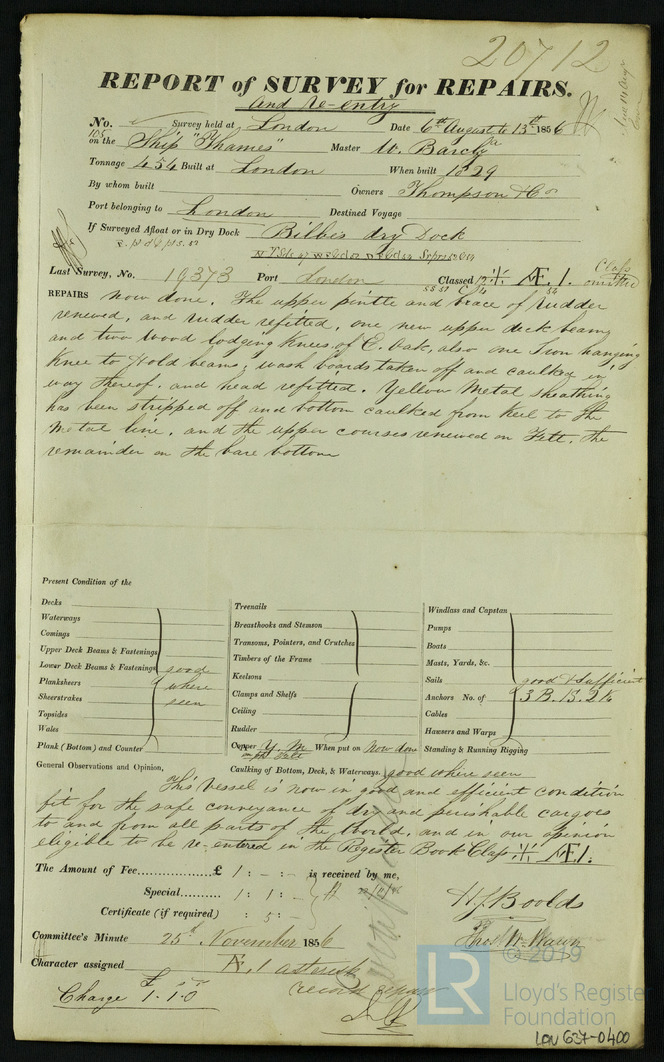 20712
REPORT of SURVEY for REPAIRS.
and re-entry
No. Survey held at London Date 6th August to 13th 1856
on the Ship "Thames" Master W. Barclay
Tonnage 454 Built at London When built 1829
By whom built Owners Thompson & Co
Port belonging to London Destined Voyage
If Surveyed Afloat or in Dry Dock Bilbes dry Dock
Last Survey, No. 19373 Port London Classed Æ. 1. Class omitted
REPAIRS now done. The upper pintle and brace of rudder
renewed, and rudder refitted, one new upper deck beam
and two wood lodging Knees of E. Oak, also one Iron hanging
Knee to Hold beams; wash boards taken off and caulked in
way thereof, and head refitted. Yellow Metal Sheathing
has been stripped off and bottom caulked from Keel to the
Metal line, and the upper courses renewed on Felt, the
remainder on the bare bottom
Present Condition of the
Decks
Waterways
Comings
Upper Deck Beams & Fastenings
Lower Deck Beams & Fastenings good
Planksheers where
Sheerstrakes seen
Topsides
Wales
Plank (Bottom) and Counter
Treenails
Breasthooks and Stemson
Transoms, Pointers, and Crutches
Timbers of the Frame
Keelsons
Clamps and Shelfs
Ceiling
Rudder
Copper Y. M When put on Now done
on pt Felt
Caulking of Bottom, Deck, & Waterways. good where seen
Windlass and Capstan
Pumps
Boats
Masts, Yards, &c.
Sails good & sufficient
Anchors No. of 3 B. 1 S. 2 K
Cables
Hawsers and Warps
Standing & Running Rigging
General Observations and Opinion,
This vessel is now in good and efficient condition
fit for the safe conveyance of dry and perishable cargoes
to and from all parts of the World, and in our opinion
eligible to be re-entered in the Register Book Class Æ 1.
The Amount of Fee £ 1 : - : - is received by me,
Special 1 : 1 : -
Certificate (if required) : 5 : -
H J Boolds
Thos W. Wawn
Committee's Minute 25th November 1856
Character assigned Æ. 1 asterisk
record repair
Charge £ 1. 1. 0
© 2019
LR
Lloyd's Register
Foundation
LON 637-0400